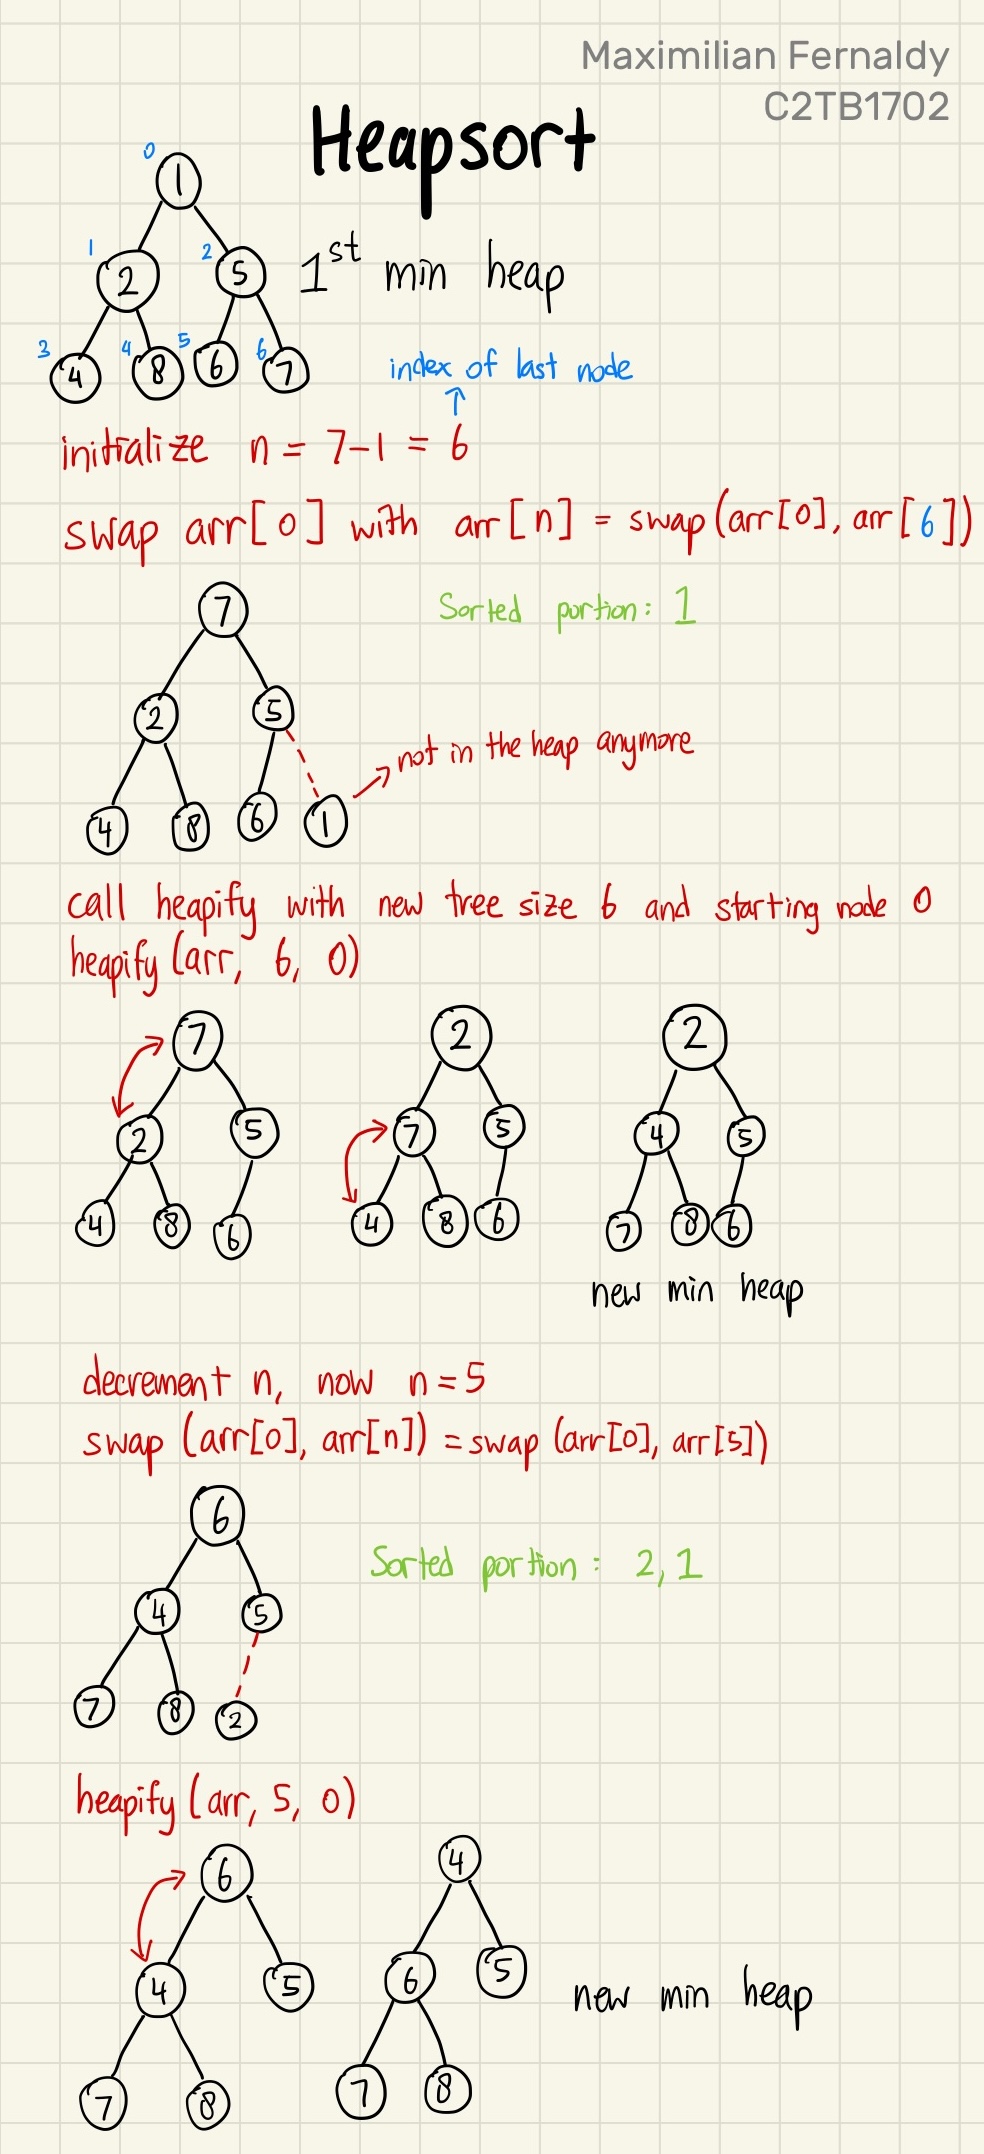 Maximilian Fernaldy
C2TB1702
Heapsort
0
1
1 2
2 5
1st min heap
3 4 5 6
4 8 6 7
index of last node
initialize n = 7-1 = 6
swap arr[0] with arr[n] = swap(arr[0], arr[6])
7
Sorted portion: 1
2 5
not in the heap anymore
4 8 6 1
call heapify with new tree size 6 and starting node 0
heapify(arr, 6, 0)
7 2 2
2 5 7 5 4 5
4 8 6 4 8 6 7 8 6
new min heap
decrement n, now n=5
swap (arr[0], arr[n]) = swap (arr[0], arr[5])
6
Sorted portion: 2,1
4 5
7 8 2
heapify(arr, 5, 0)
6 4
4 5 6 5
new min heap
7 8 7 8